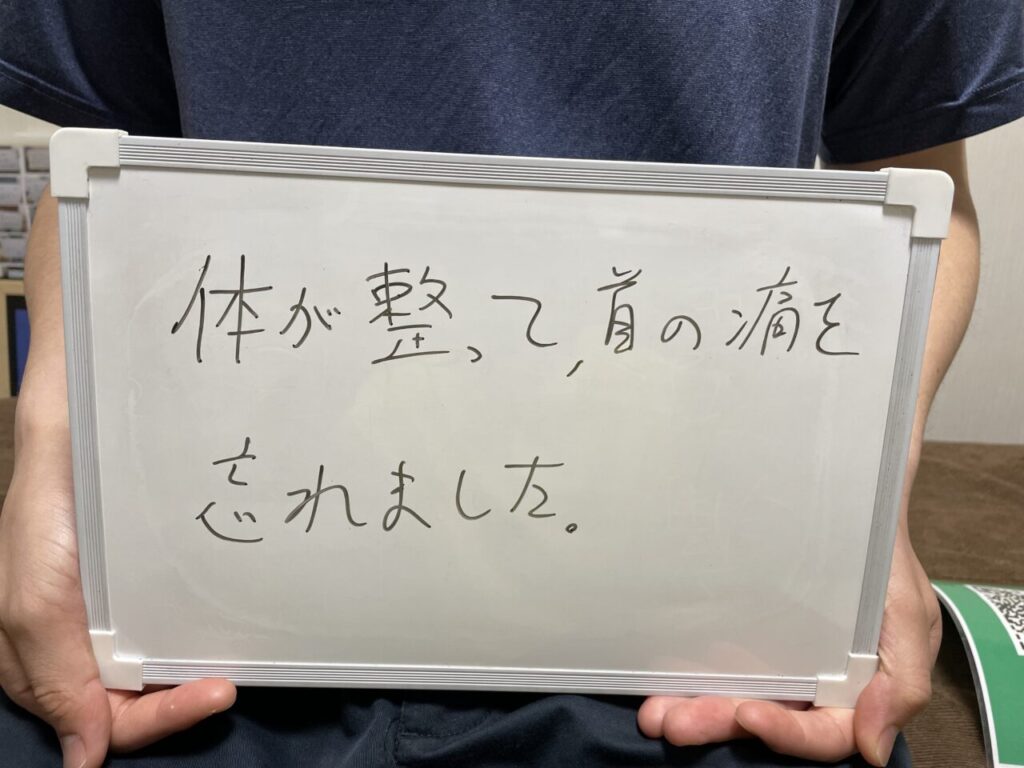 体が整って,首の痛を
忘れました。